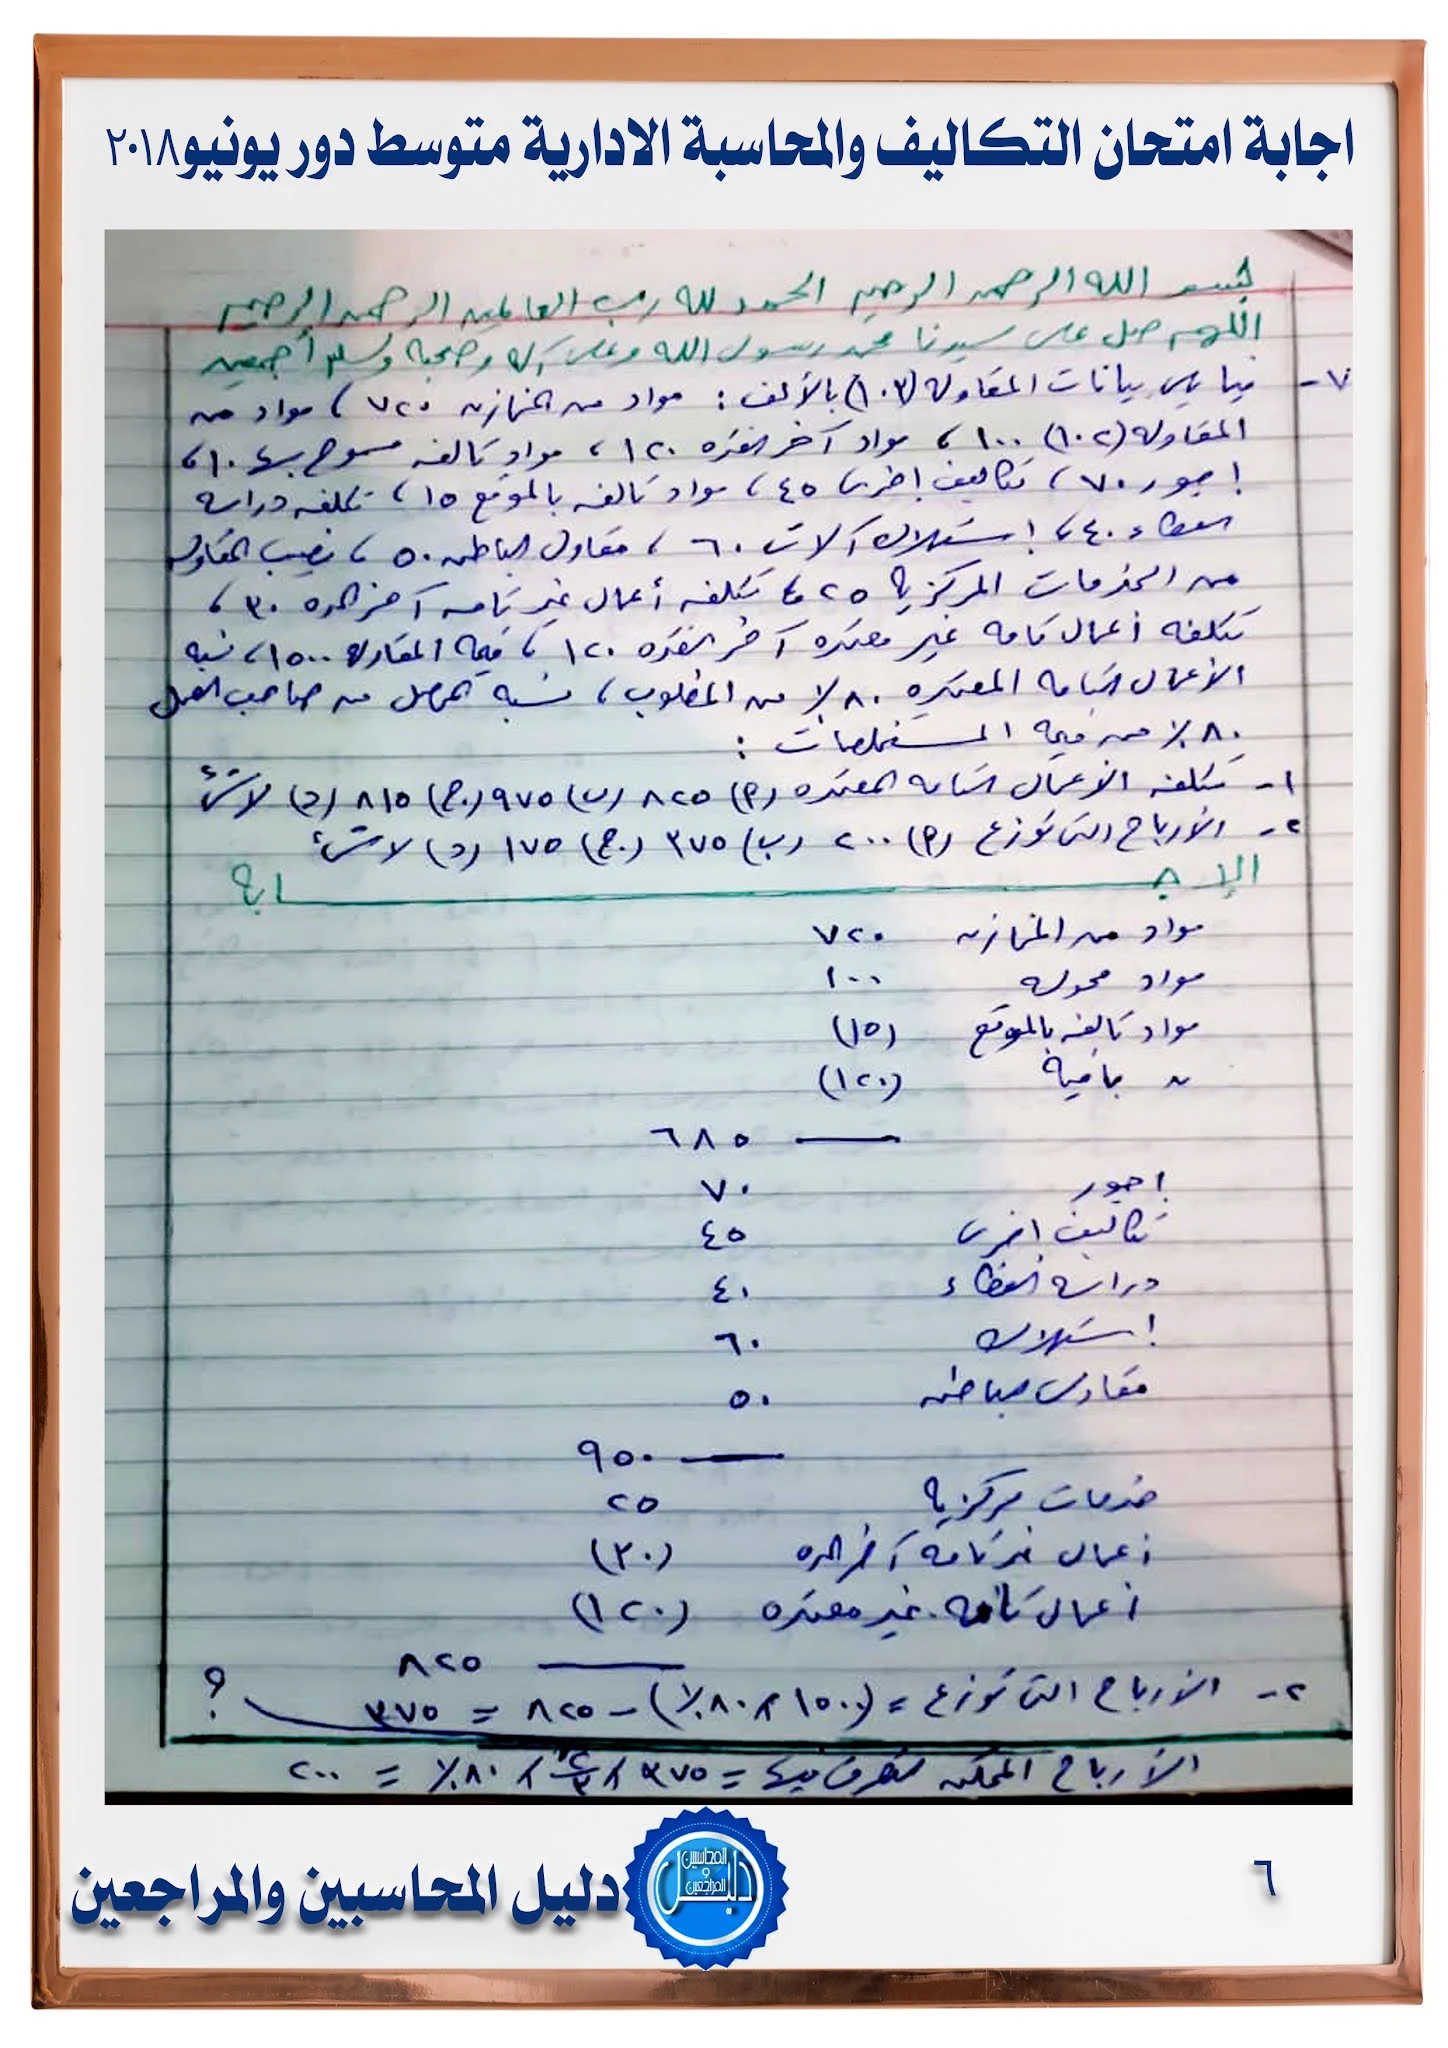 اجابة امتحان التكاليف والمحاسبة الادارية متوسط دور يونيو٢٠١٨
بسم الله الرحمن الرحيم الحمد لله رب العالمين الرحمن الرحيم
اللهم صل على سيدنا محمد رسول الله وعلى آله وصحبه وسلم أجمعين
٧- فيما يلي بيانات المقاولة (١٠٣) بالألف : مواد من المخازن ٧٢٠ ، مواد من
المقاولة (١٠٢) ١٠٠ ، مواد آخر الفترة ١٢٠ ، مواد تالفة مسموح بها ١٠ ،
اجور ٧٠ ، تكاليف اخرى ٤٥ ، مواد تالفة بالموقع ١٥ ، تكلفة دراسة
العطاء ٤٠ ، استهلاك آلات ٦٠ ، مقاول الباطن ٥٠ ، نصيب المقاولة
من الخدمات المركزية ٢٥ ، تكلفة أعمال غير تامة آخر المدة ٣٠ ،
تكلفة اعمال تامة غير معتمدة آخر الفترة ١٢٠ ، قيمة المقاولة ١٥٠٠ ، نسبة
الأعمال التامة المعتمدة ٨٠ % من المطلوب ، نسبة المحصل من صاحب العمل
٨٠ % من قيمة المستخلصات :
١- تكلفة الأعمال التامة المعتمدة (P) ٨٢٥ (ب) ٩٧٥ (ج) ٨١٥ (د) لا شئ
٢- الأرباح التى توزع (P) ٢٠٠ (ب) ٣٧٥ (ج) ١٧٥ (د) لا شئ
الإجـــــــابة
مواد من المخازن ٧٢٠
مواد محولة ١٠٠
مواد تالفة بالموقع (١٥)
باقية (١٢٠)
٦٨٥
اجور ٧٠
تكاليف اخرى ٤٥
دراسة العطاء ٤٠
استهلاك ٦٠
مقاول باطن ٥٠
٩٥٠
خدمات مركزية ٢٥
اعمال غير تامة آخر المدة (٣٠)
اعمال تامة غير معتمدة (١٢٠)
٨٢٥
٢- الأرباح التى توزع = (١٥٠٠ × ٨٠ %) - ٨٢٥ = ٣٧٥ ؟
الأرباح الممكن التصرف فيها = ٣٧٥ × ٢/٣ × ٨٠ % = ٢٠٠
دليل المحاسبين والمراجعين
دليل المحاسبين و المراجعين
٦